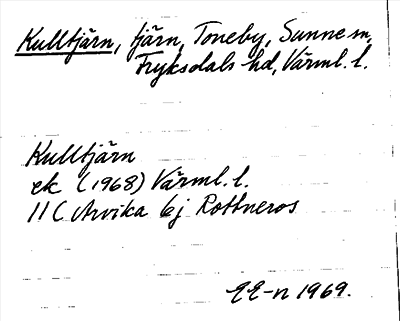 Kulltjärn, tjärn, Toneby, Sunne sn,
Fryksdals hd, Värml. l.
Kulltjärn
ek (1968) Värml. l.
11C Arvika 6j Rottneros
EE-n 1969.